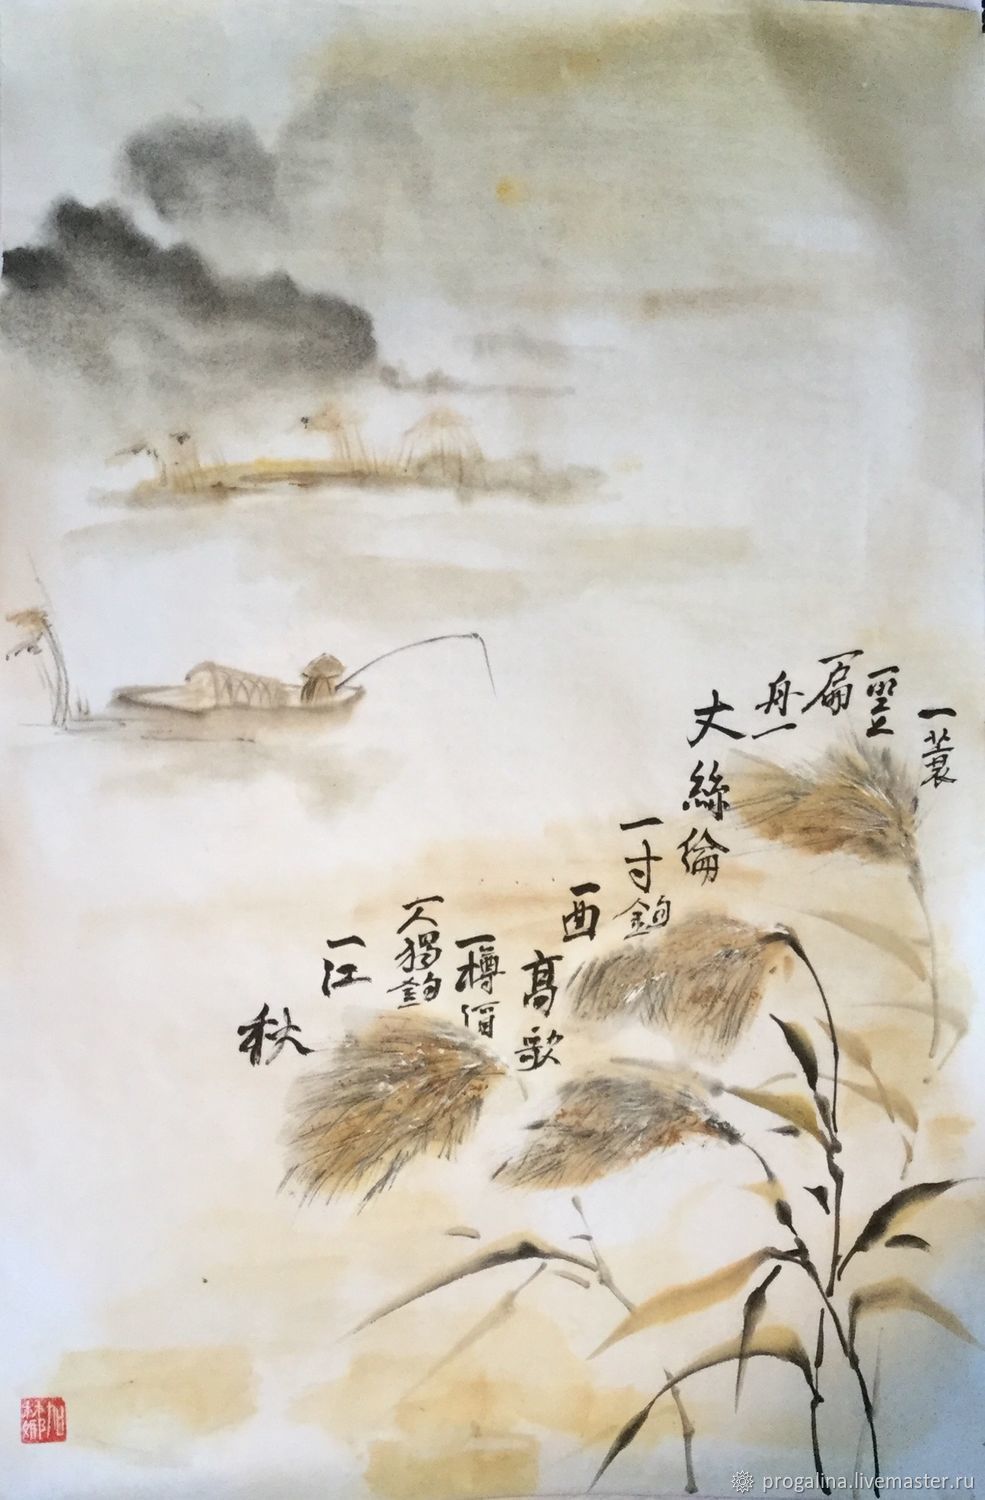 一蓑
一
一扁
舟一
丈絲綸
一寸鉤
一
高歌
一樽
一人獨釣
一江
秋
progalina.livemaster.ru